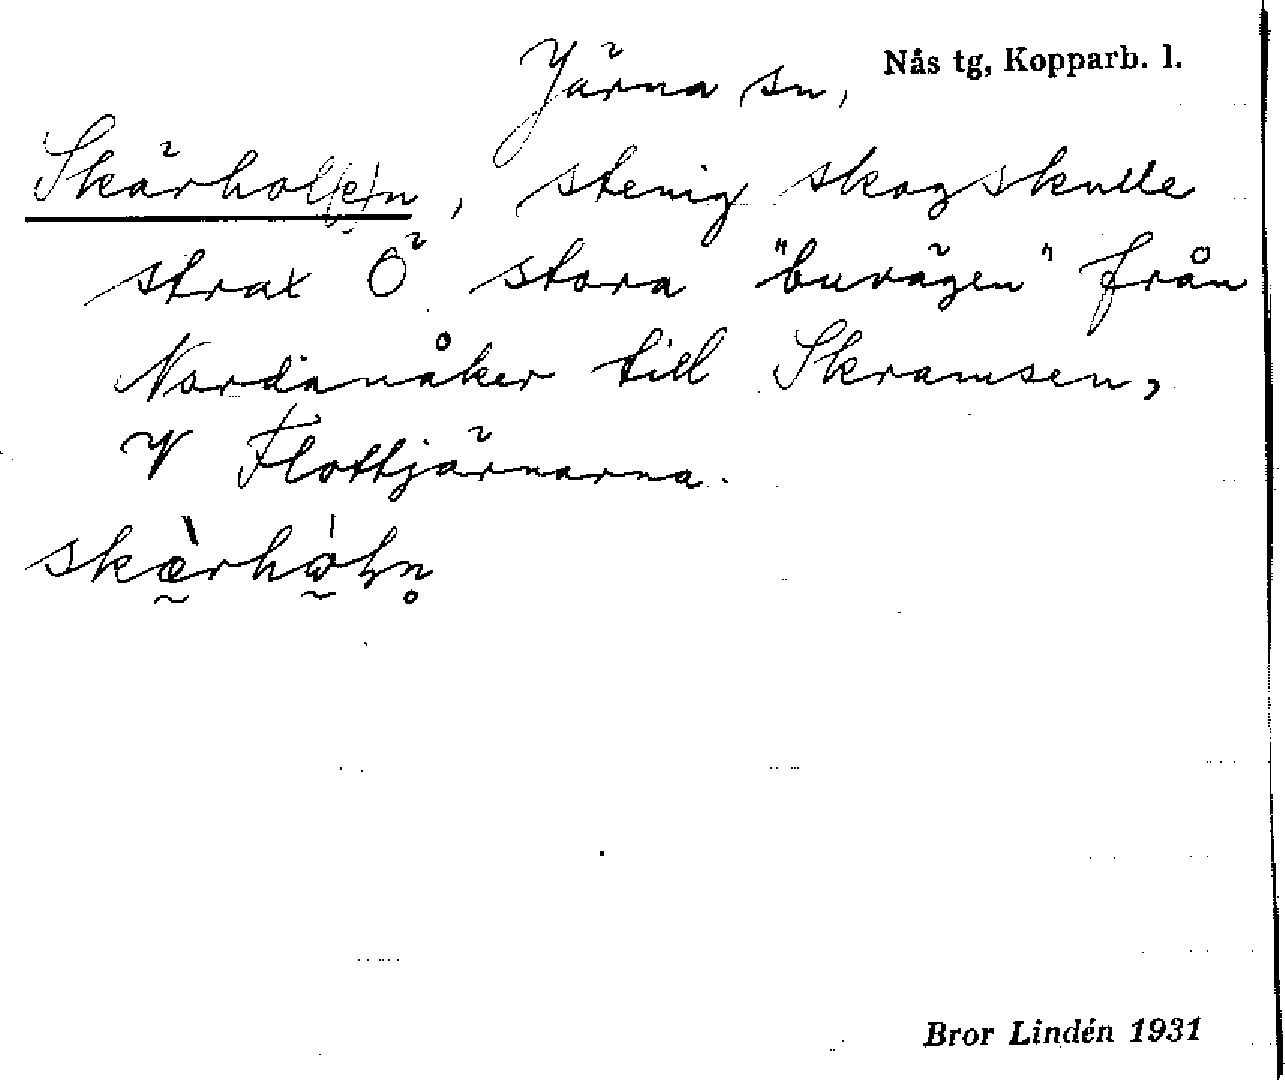 Järna sn, Nås tg, Kopparb. l.
Skärhol(e)n, stenig skogskulle
strax Ö stora "buvägen" från
Nordanåker till Skramsen,
V Flottjärnarna.
skæ̀rhólṇ
Bror Lindén 1931